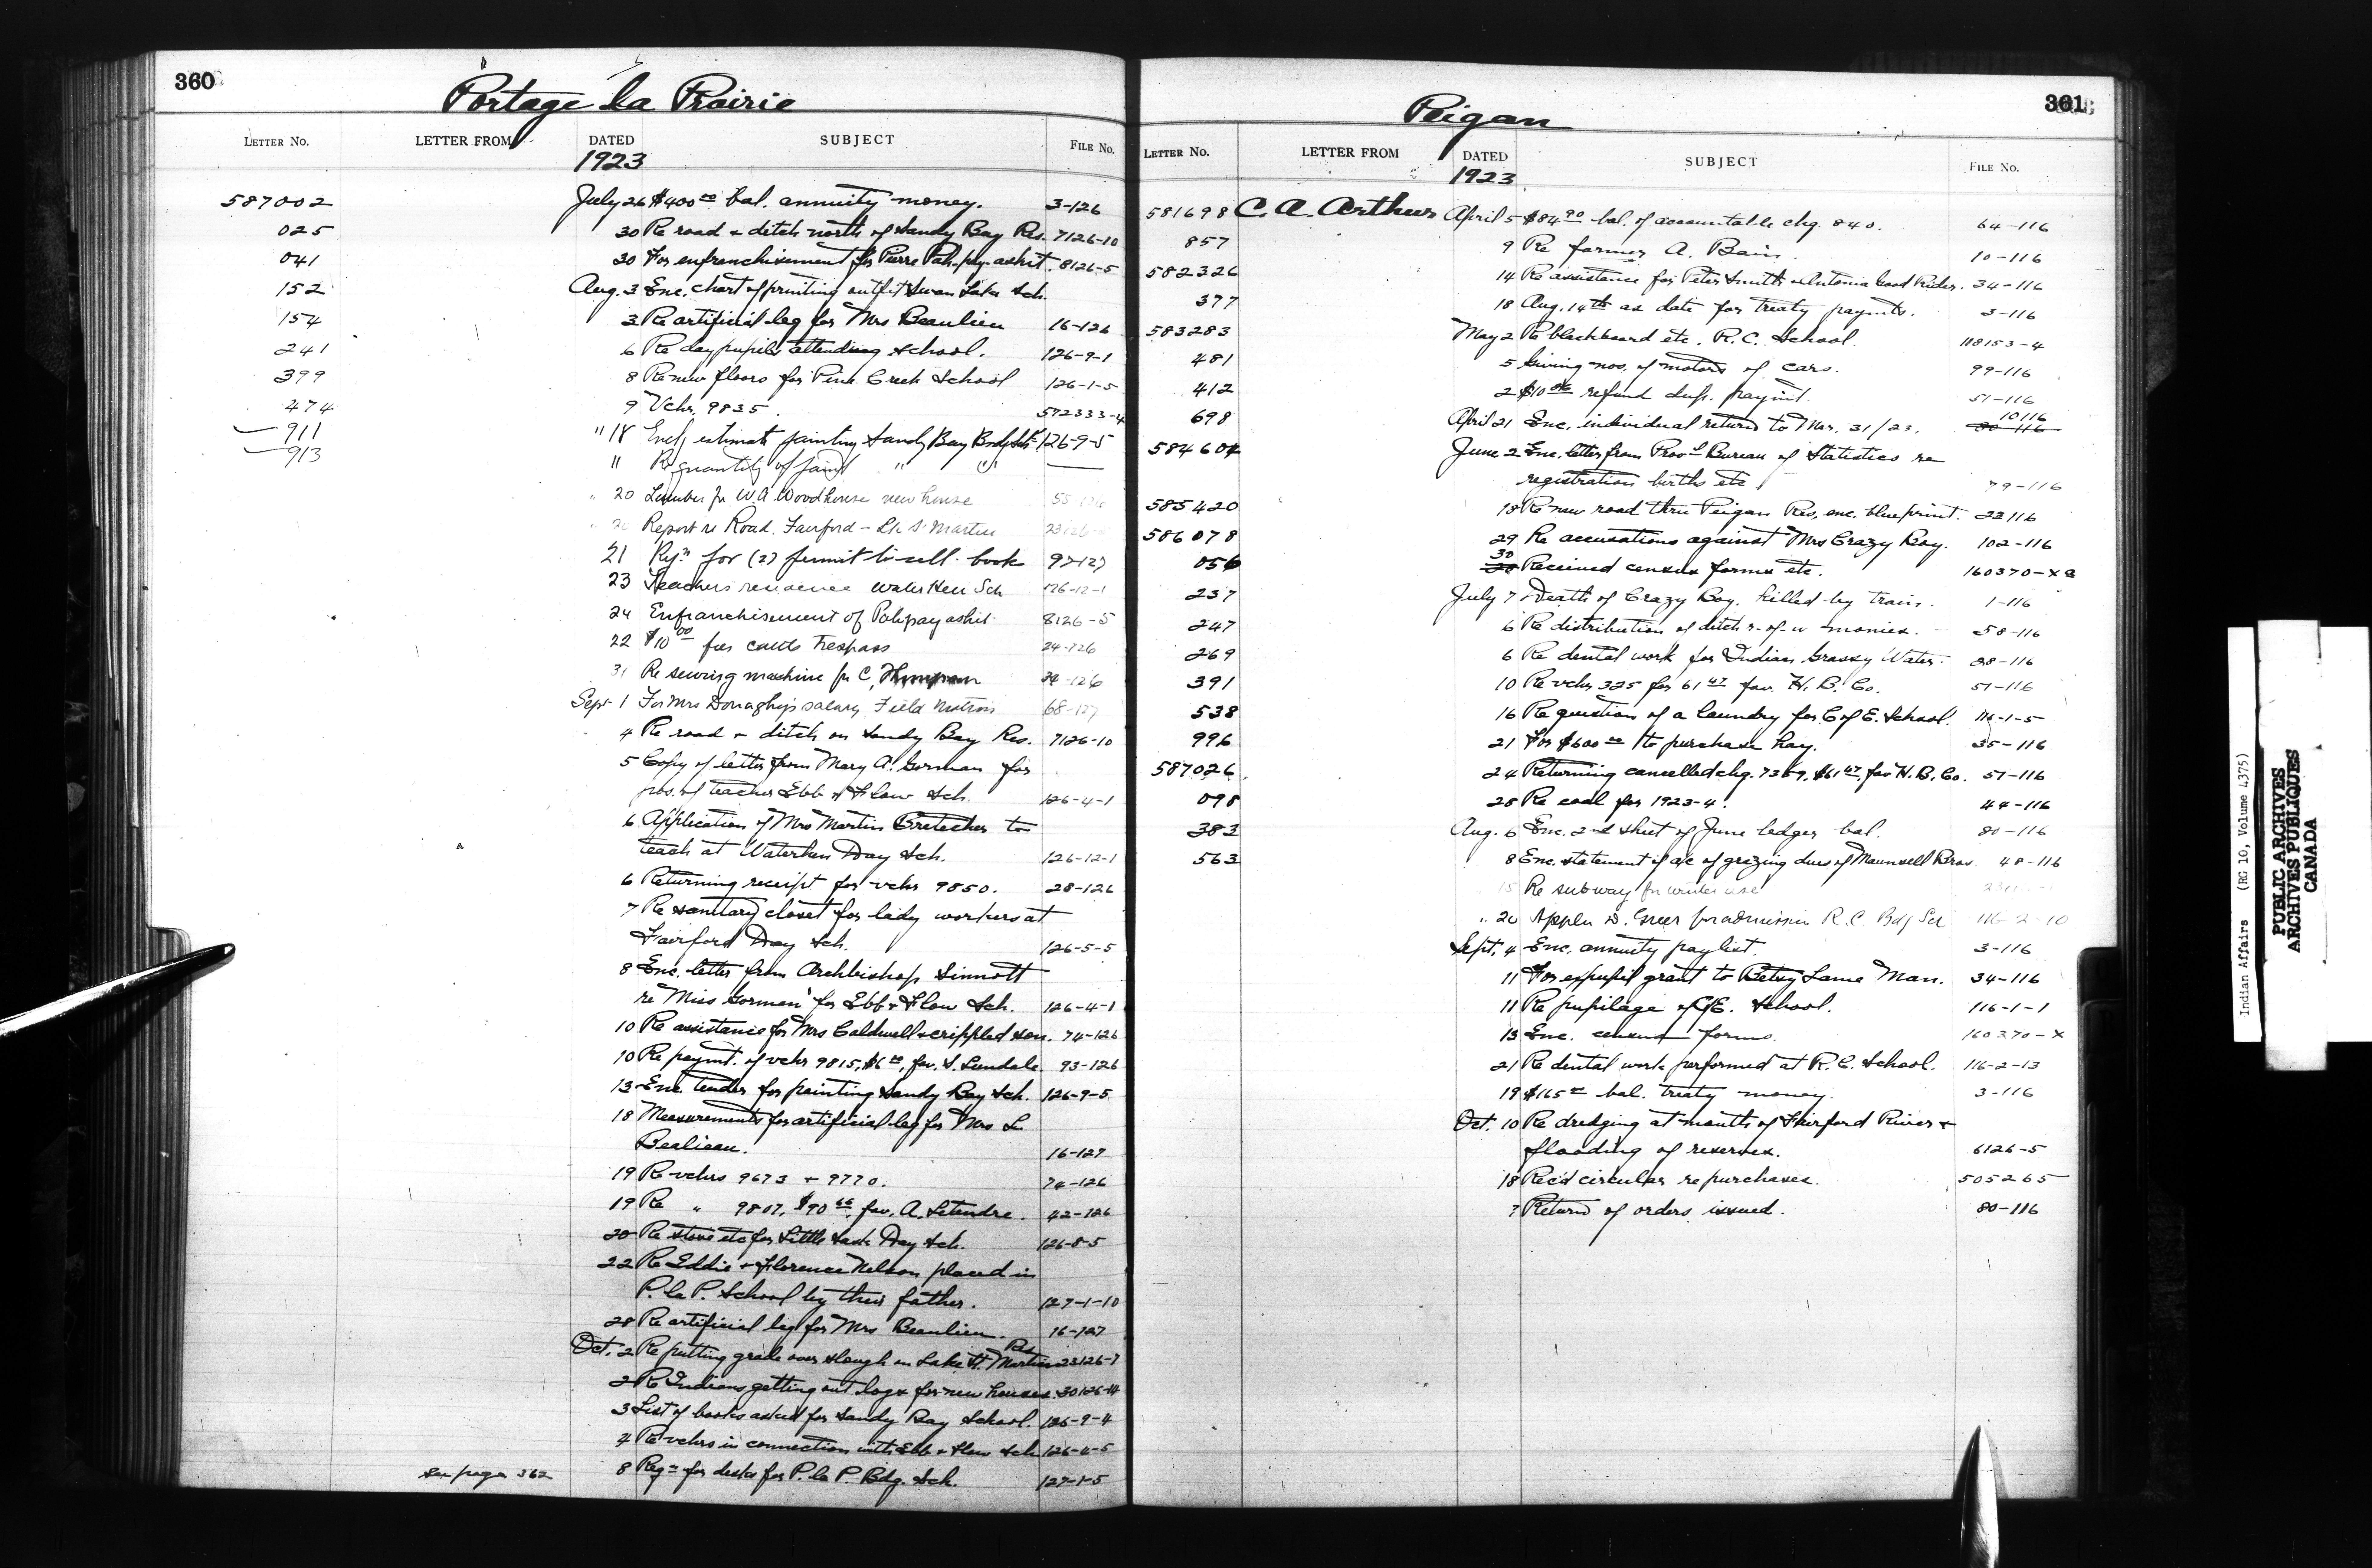 360
Portage la Prairie
LETTER No. LETTER FROM DATED SUBJECT FILE No.
1923
587002 July 26 $400 00 bal. annuity money. 3-126
025 30 Re road + ditch north of Sandy Bay Res. 7126-10
041 30 For enfranchisement for Pierre Pah-pay-ashit. 8126-5
152 Aug. 3 Enc. chart of printing outfit Swan Lake Sch.
154 3 Re artificial leg for Mrs Beaulieu 16-126
241 6 Re day pupils attending school. 126-9-1
399 8 Re new floors for Pine Creek School 126-1-5
474 9 Vchr. 9835. 572333-4
911 " 18 estimate painting Sandy Bay Bdg Sch 126-9-5
913 " Re quantity of paint " "
" 20 Lumber for W.A Woodhouse new house
Report re Road, Fairford - Lk St Martin
21 Rqn for (2) permit to sell book 97-127
23 Teachers residence Water Hen Sch 126-12-1
24 Enfranchisement of Pahpayashit 8126-5
22 $10 00 fees cattle trespass 24-126
31 Re sewing machine for C,
Sept 1 For Mrs Donaghy's salary Field Matron 68-127
4 Re road + ditch on Sandy Bay Res. 7126-10
5 Copy of letter from Mary A. Gorman for
pos. of teacher Ebb & Flow Sch. 126-4-1
6 Application of Mrs Martin Bretecher to
teach at Waterhen Day Sch. 126-12-1
6 Returning receipt for vchr 9850. 28-126
7 Re sanitary closet for lady workers at
Fairford Day Sch. 126-5-5
8 Enc. letter from Archbishop Sinnott
re Miss Gorman for Ebb + Flow Sch. 126-4-1
10 Re assistance for Mrs Caldwell + crippled son. 74-126
10 Re paymt. of vchr 9815, $6 00, fav. S. Lundale. 93-126
13 Enc. tender for painting Sandy Bay Sch. 126-9-5
18 Measurements for artificial leg for Mrs L.
Bealieau. 16-127
19 Re vchrs 9673 + 9770. 74-126
19 Re " 9807, $90 66, fav. A. Letendre. 42-126
20 Re stove etc for Little Sask Day Sch. 126-8-5
22 Re Eddie + Florence Nelson placed in
P. la P. School by their father. 127-1-10
28 Re artificial leg for Mrs Beaulieu. 16-127
Oct. 2 Re putting grade over slough on Lake St. Martin Res 23126-7
2 Re Indians getting out logs for new houses. 30126-14
3 List of books asked for Sandy Bay School. 126-9-4
4 Re vchrs in connection with Ebb + Flow Sch 126-4-5
see page 362 8 Reqn for desks for P. la P. Bdg. Sch. 127-1-5
361
Peigan
LETTER No. LETTER FROM DATED SUBJECT FILE No.
1923
581698 C. A. Arthur April 5 $84 90 bal. of accountable chq. 840. 64-116
857 9 Re farmer A. Bain. 10-116
582326 14 Re assistance for Peter Smith + Antonia Good Rider. 34-116
377 18 Aug. 14th as date for treaty paymts. 3-116
583283 May 2 Re blackboard etc. R. C. School. 118153-4
481 5 Giving nos. of motors of cars. 99-116
412 2 $10 refund dup. paymt. 51-116
698 April 21 Enc. individual return to Mar. 31/23. 10116 80-116
584604 June 2 Enc. letter from Prov'l Bureau of Statistics re
registration births etc 79-116
585420 18 Re new road thru Peigan Res, enc. blueprint. 23116
586078 29 Re accusations against Mrs Crazy Boy. 102-116
056 30 Received census forms etc. 160370-X
237 July 7 Death of Crazy Boy. killed by train. 1-116
247 6 Re distribution of ditch r-of-w monies. 58-116
269 6 Re dental work for Indian Grassy Water. 28-116
391 10 Re vchr 325 for 61 47 fav. H. B. Co. 51-116
538 16 Re question of a laundry for C of E. School. 116-1-5
996 21 For $600 00 to purchase hay. 35-116
587026 24 Returning cancelled chq. 7369, $61 47, fav H. B. Co. 51-116
098 28 Re coal for 1923-4. 44-116
383 Aug. 6 Enc. 2nd sheet of June ledger bal. 80-116
563 8 Enc. statement of a/c of grazing dues of Maunsell Bros. 48-116
15 Re subway for winter use
" 20 Appln D. Greer for admission R. C Bdg Scl 116-2-10
Sept. 4 Enc. annuity paylist. 3-116
11 For expupil grant to Betsy Lame Man. 34-116
11 Re pupilage C of E. School. 116-1-1
13 Enc. census forms. 160370-X
21 Re dental work performed at R. C. School. 116-2-13
19 $165 00 bal. treaty money. 3-116
Oct. 10 Re dredging at mouth of Fairford River +
flooding of reserves. 6126-5
18 Rec'd circular re purchases. 505265
? Return of orders issued. 80-116
Indian Affairs (RG 10, Volume 4375)
PUBLIC ARCHIVES
ARCHIVES PUBLIQUES
CANADA